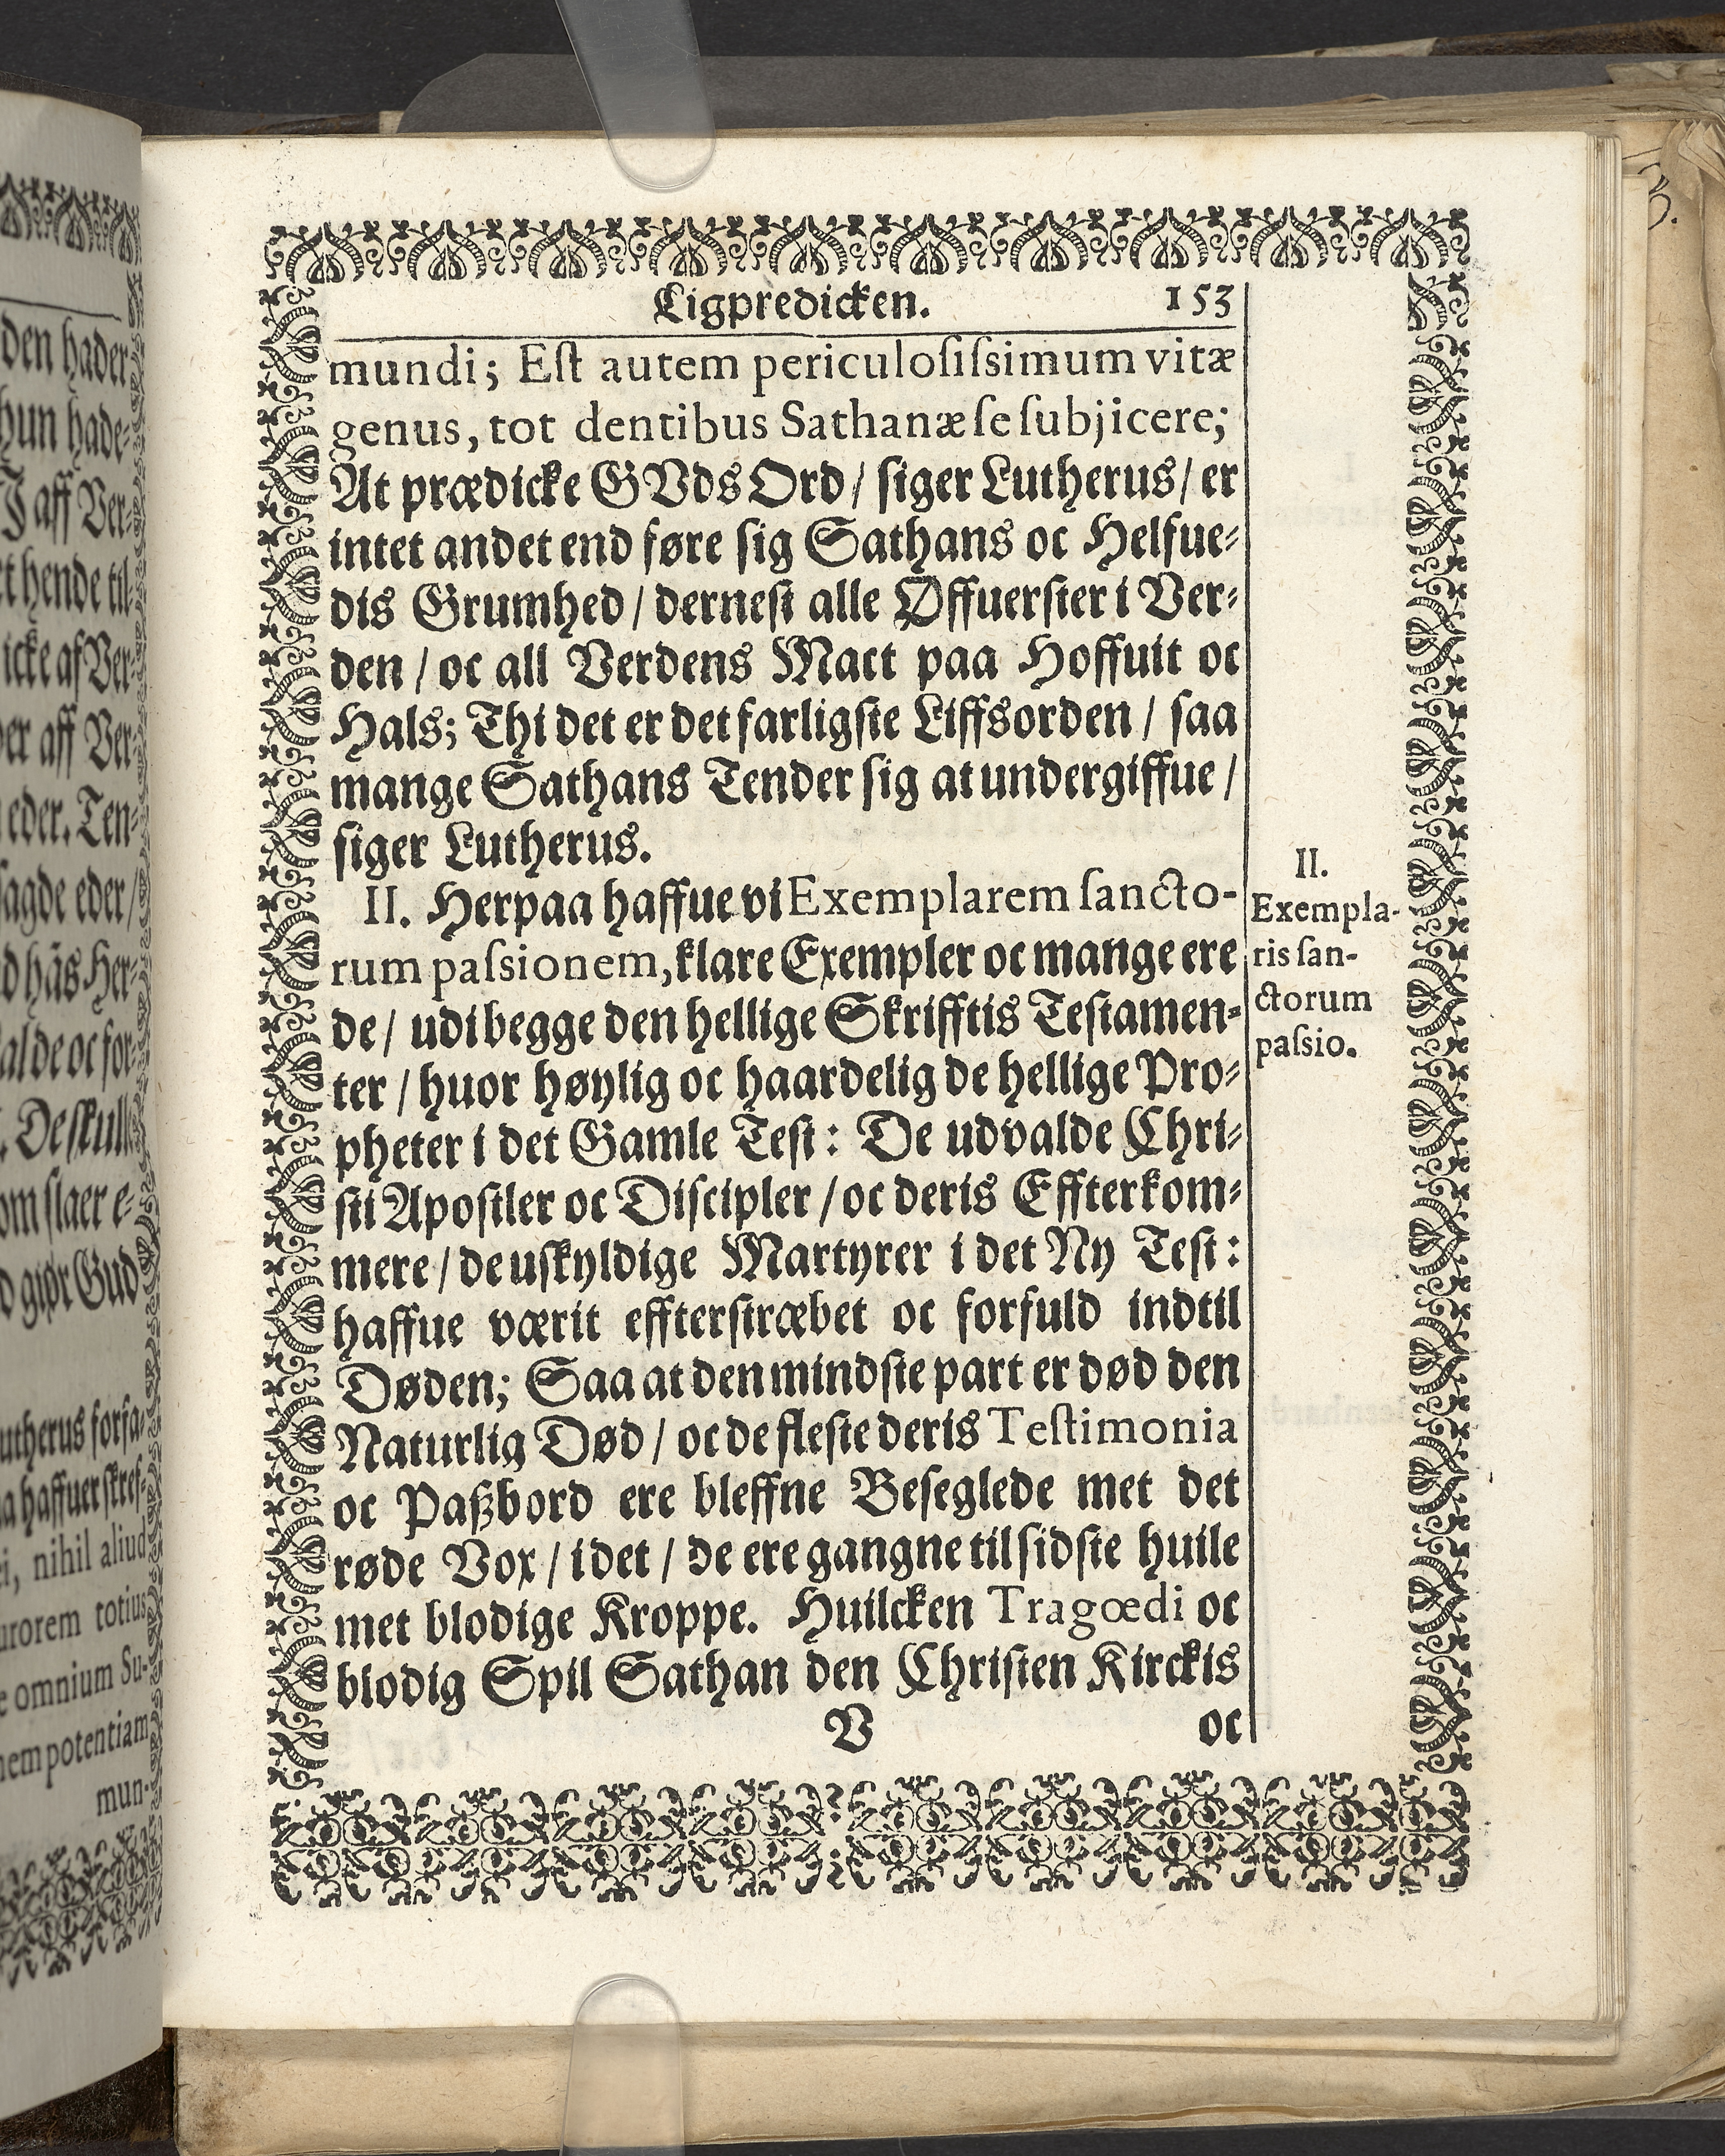 Ligpredicken. 153
mundi; Est autem periculosissimum vitæ
genus, tot dentibus Sathanæ se subjicere;
At prædicke GVds Ord / siger Lutherus / er
intet andet end føre sig Sathans oc Helfue-
dis Grumhed / dernest alle Øffuerster i Ver-
den / oc all Verdens Mact paa Hoffuit oc
Hals; Thi det er det farligste Liffsorden / saa
mange Sathans Tender sig at undergiffue /
siger Lutherus.
II. Herpaa haffue vi Exemplarem sancto-
rum passionem, klare Exempler oc mange ere
de / udi begge den hellige Skrifftis Testamen-
ter / huor høylig oc haardelig de hellige Pro-
pheter i det Gamle Test: De udvalde Chri-
sti Apostler oc Discipler / oc deris Effterkom-
mere / de uskyldige Martyrer i det Ny Test:
haffue værit effterstræbet oc forfuld indtil
Døden; Saa at den mindste part er død den
Naturlig Død / oc de fleste deris Testimonia
oc Paßbord ere bleffne Beseglede met det
røde Vox / i det / de ere gangne til sidste huile
met blodige Kroppe. Huilcken Tragœdi oc
blodig Spil Sathan den Christen Kirckis
V oc
II.
Exempla-
ris san-
ctorum
passio.
den hader
hun hade-
J aff Ver-
hende til
icke af Ver-
aff Ver-
eder. Ten-
sagde eder /
hās Her-
oc for-
De skull
slaer e-
giør Gud
haffuer skref-
nihil aliud
totius
omnium Su-
potentiam
mun-